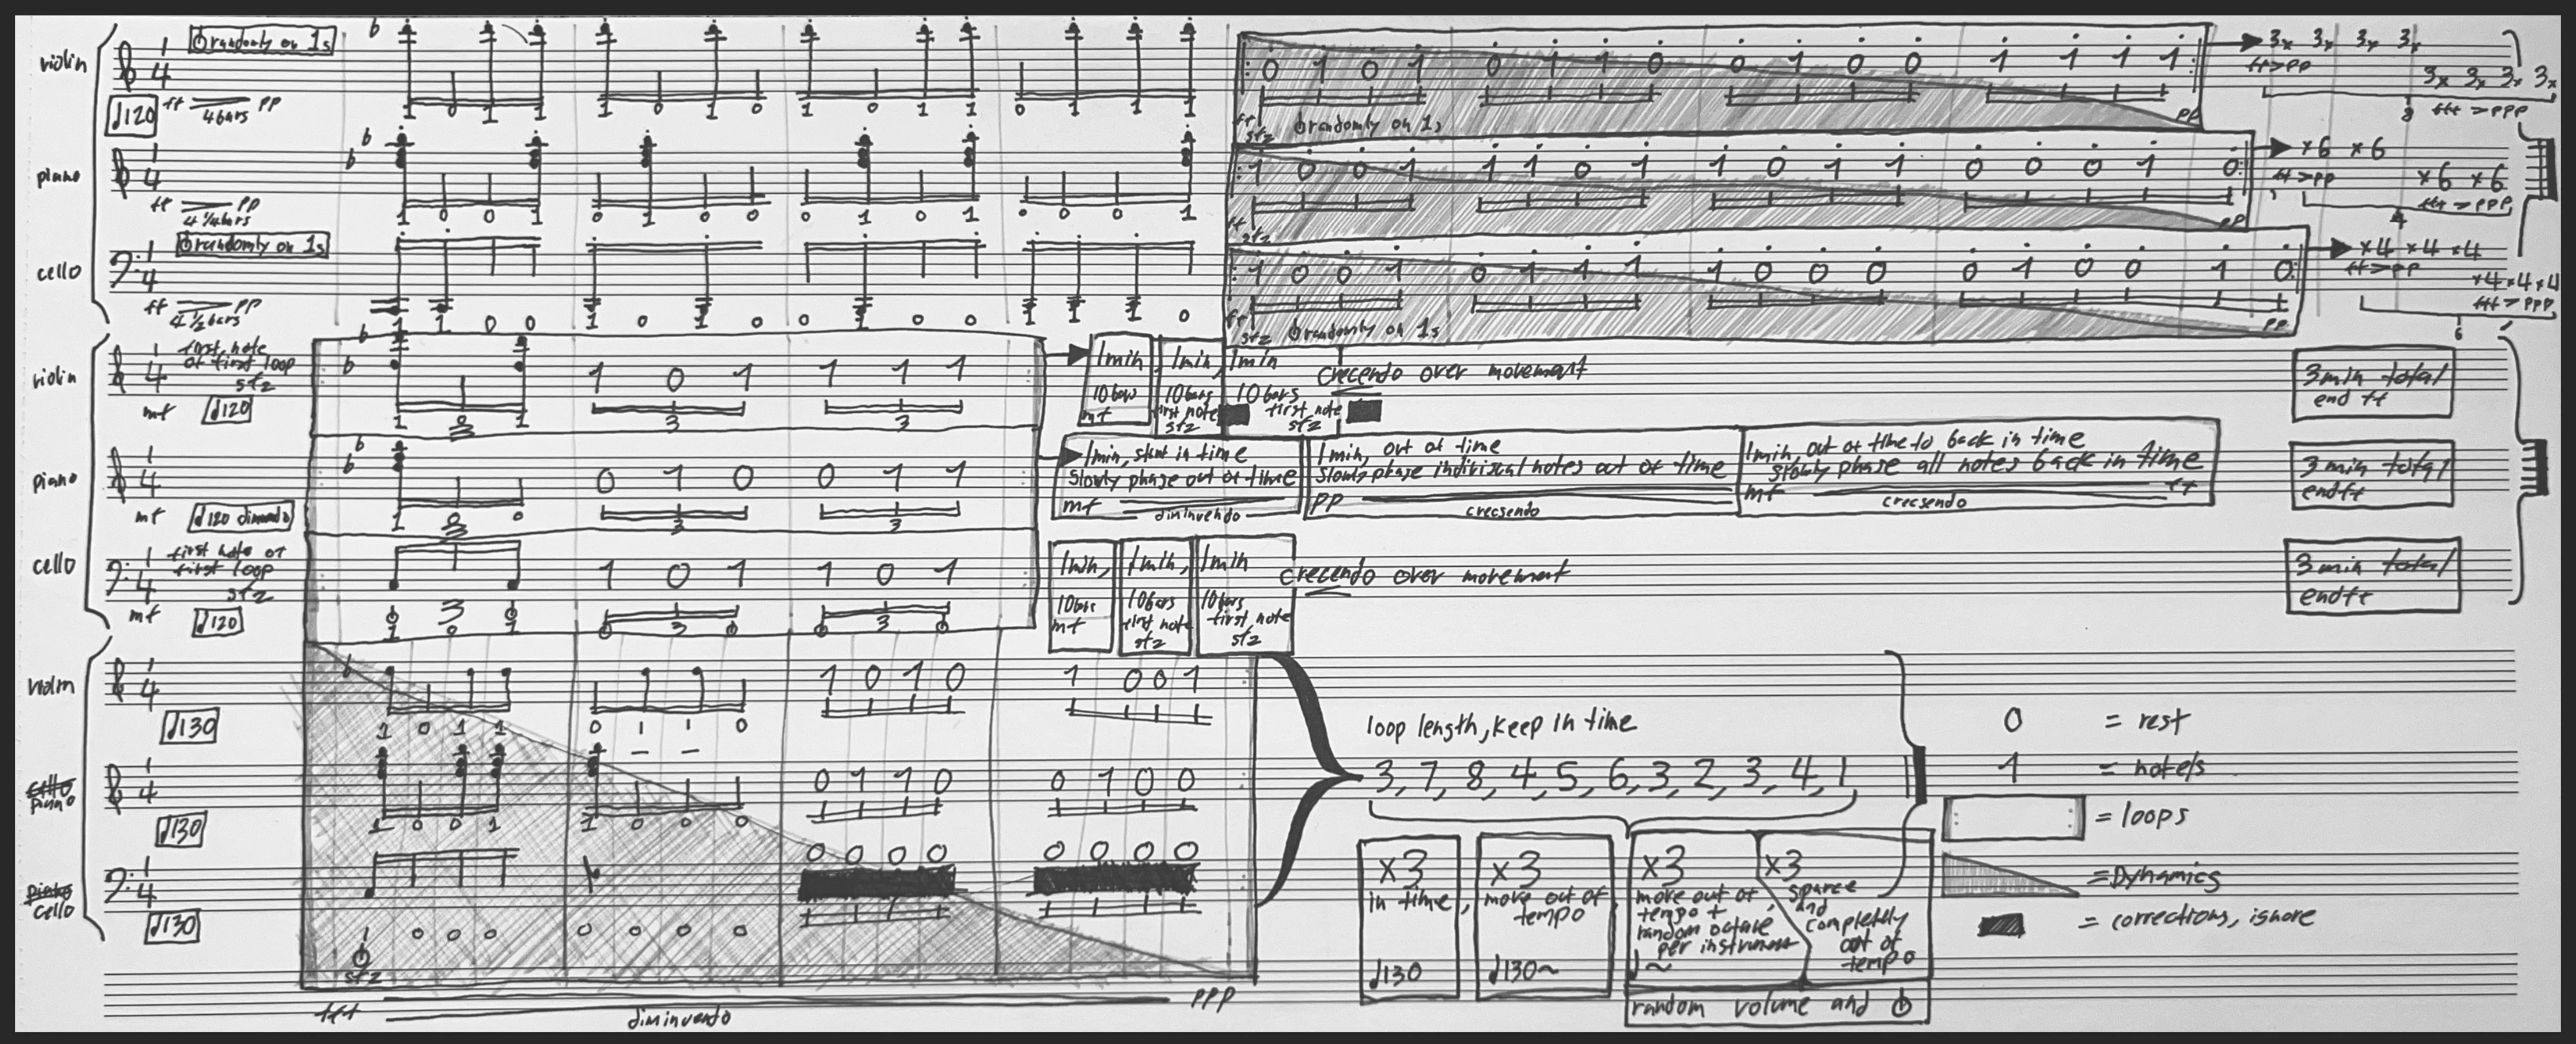 violin 1 4 randomly on 1s
♩120 ff pp
4bars
1 0 1 1 1 0 1 0 1 0 1 1 0 1 1 1
piano 1 4
ff pp
4 1/4bars
1 0 0 1 0 1 0 0 0 1 0 1 0 0 0 1
cello 1 4 randomly on 1s
ff pp
4 1/2bars
1 1 0 0 1 0 1 0 0 1 0 0 1 1 1 0
0 1 0 1 0 1 1 0 0 1 0 0 1 1 1 1
ff sfz randomly on 1s pp
3x 3x 3x 3x
ff>pp
3x 3x 3x 3x
8 fff >ppp
1 0 0 1 1 1 0 1 1 0 1 1 0 0 0 1 0
ff sfz pp
x6 x6
ff>pp
x6 x6
4 fff >ppp
1 0 0 1 0 1 1 1 1 0 0 0 0 1 0 0 1 0
ff sfz randomly on 1s pp
x4 x4 x4
ff>pp
x4 x4 x4
fff >ppp
6
violin 1 4 first note
of first loop
sfz
mf ♩120
1 0 1 1 0 1 1 1 1
3 3 3
1min 1min, 1min
10bars 10bars 10bars
mf first note first note
sfz sfz
crecendo over movement
3min total
end ff
piano 1 4
mf ♩120 diminuendo
1 0 0 0 1 0 0 1 1
3 3 3
1min, start in time
slowly phase out of time
mf diminuendo
1min, out of time
slowly phase individual notes out of time
pp crecsendo
1min, out of time to back in time
slowly phase all notes back in time
mf crecsendo ff
3min total
endff
cello 1 4 first note of
first loop
sfz
mf ♩120
1 0 1 1 0 1 1 0 1
3 3 3
1min, 1min, 1min
10bars 10bars 10bars
mf first note first note
sfz sfz
crecendo over movement
3min total
endff
violin 1 4
♩130
1 0 1 1 0 1 1 0 1 0 1 0 1 0 0 1
cello
piano 1 4
♩130
1 0 0 1 1 0 0 0 0 1 1 0 0 1 0 0
piano
cello 1 4
♩130
0 0 0 0 0 0 0 0
1 0 0 0 0 0 0 0
sfz
fff diminuendo ppp
loop length, keep in time
3, 7, 8, 4, 5, 6, 3, 2, 3, 4, 1
x3
in time,
♩130
x3
move out of
tempo
♩130~
x3
move out of
tempo +
random octave
per instrument
♩~
x3
sparce
and
completely
out of
tempo
random volume and
0 = rest
1 = note/s
= loops
= Dynamics
= corrections, ignore